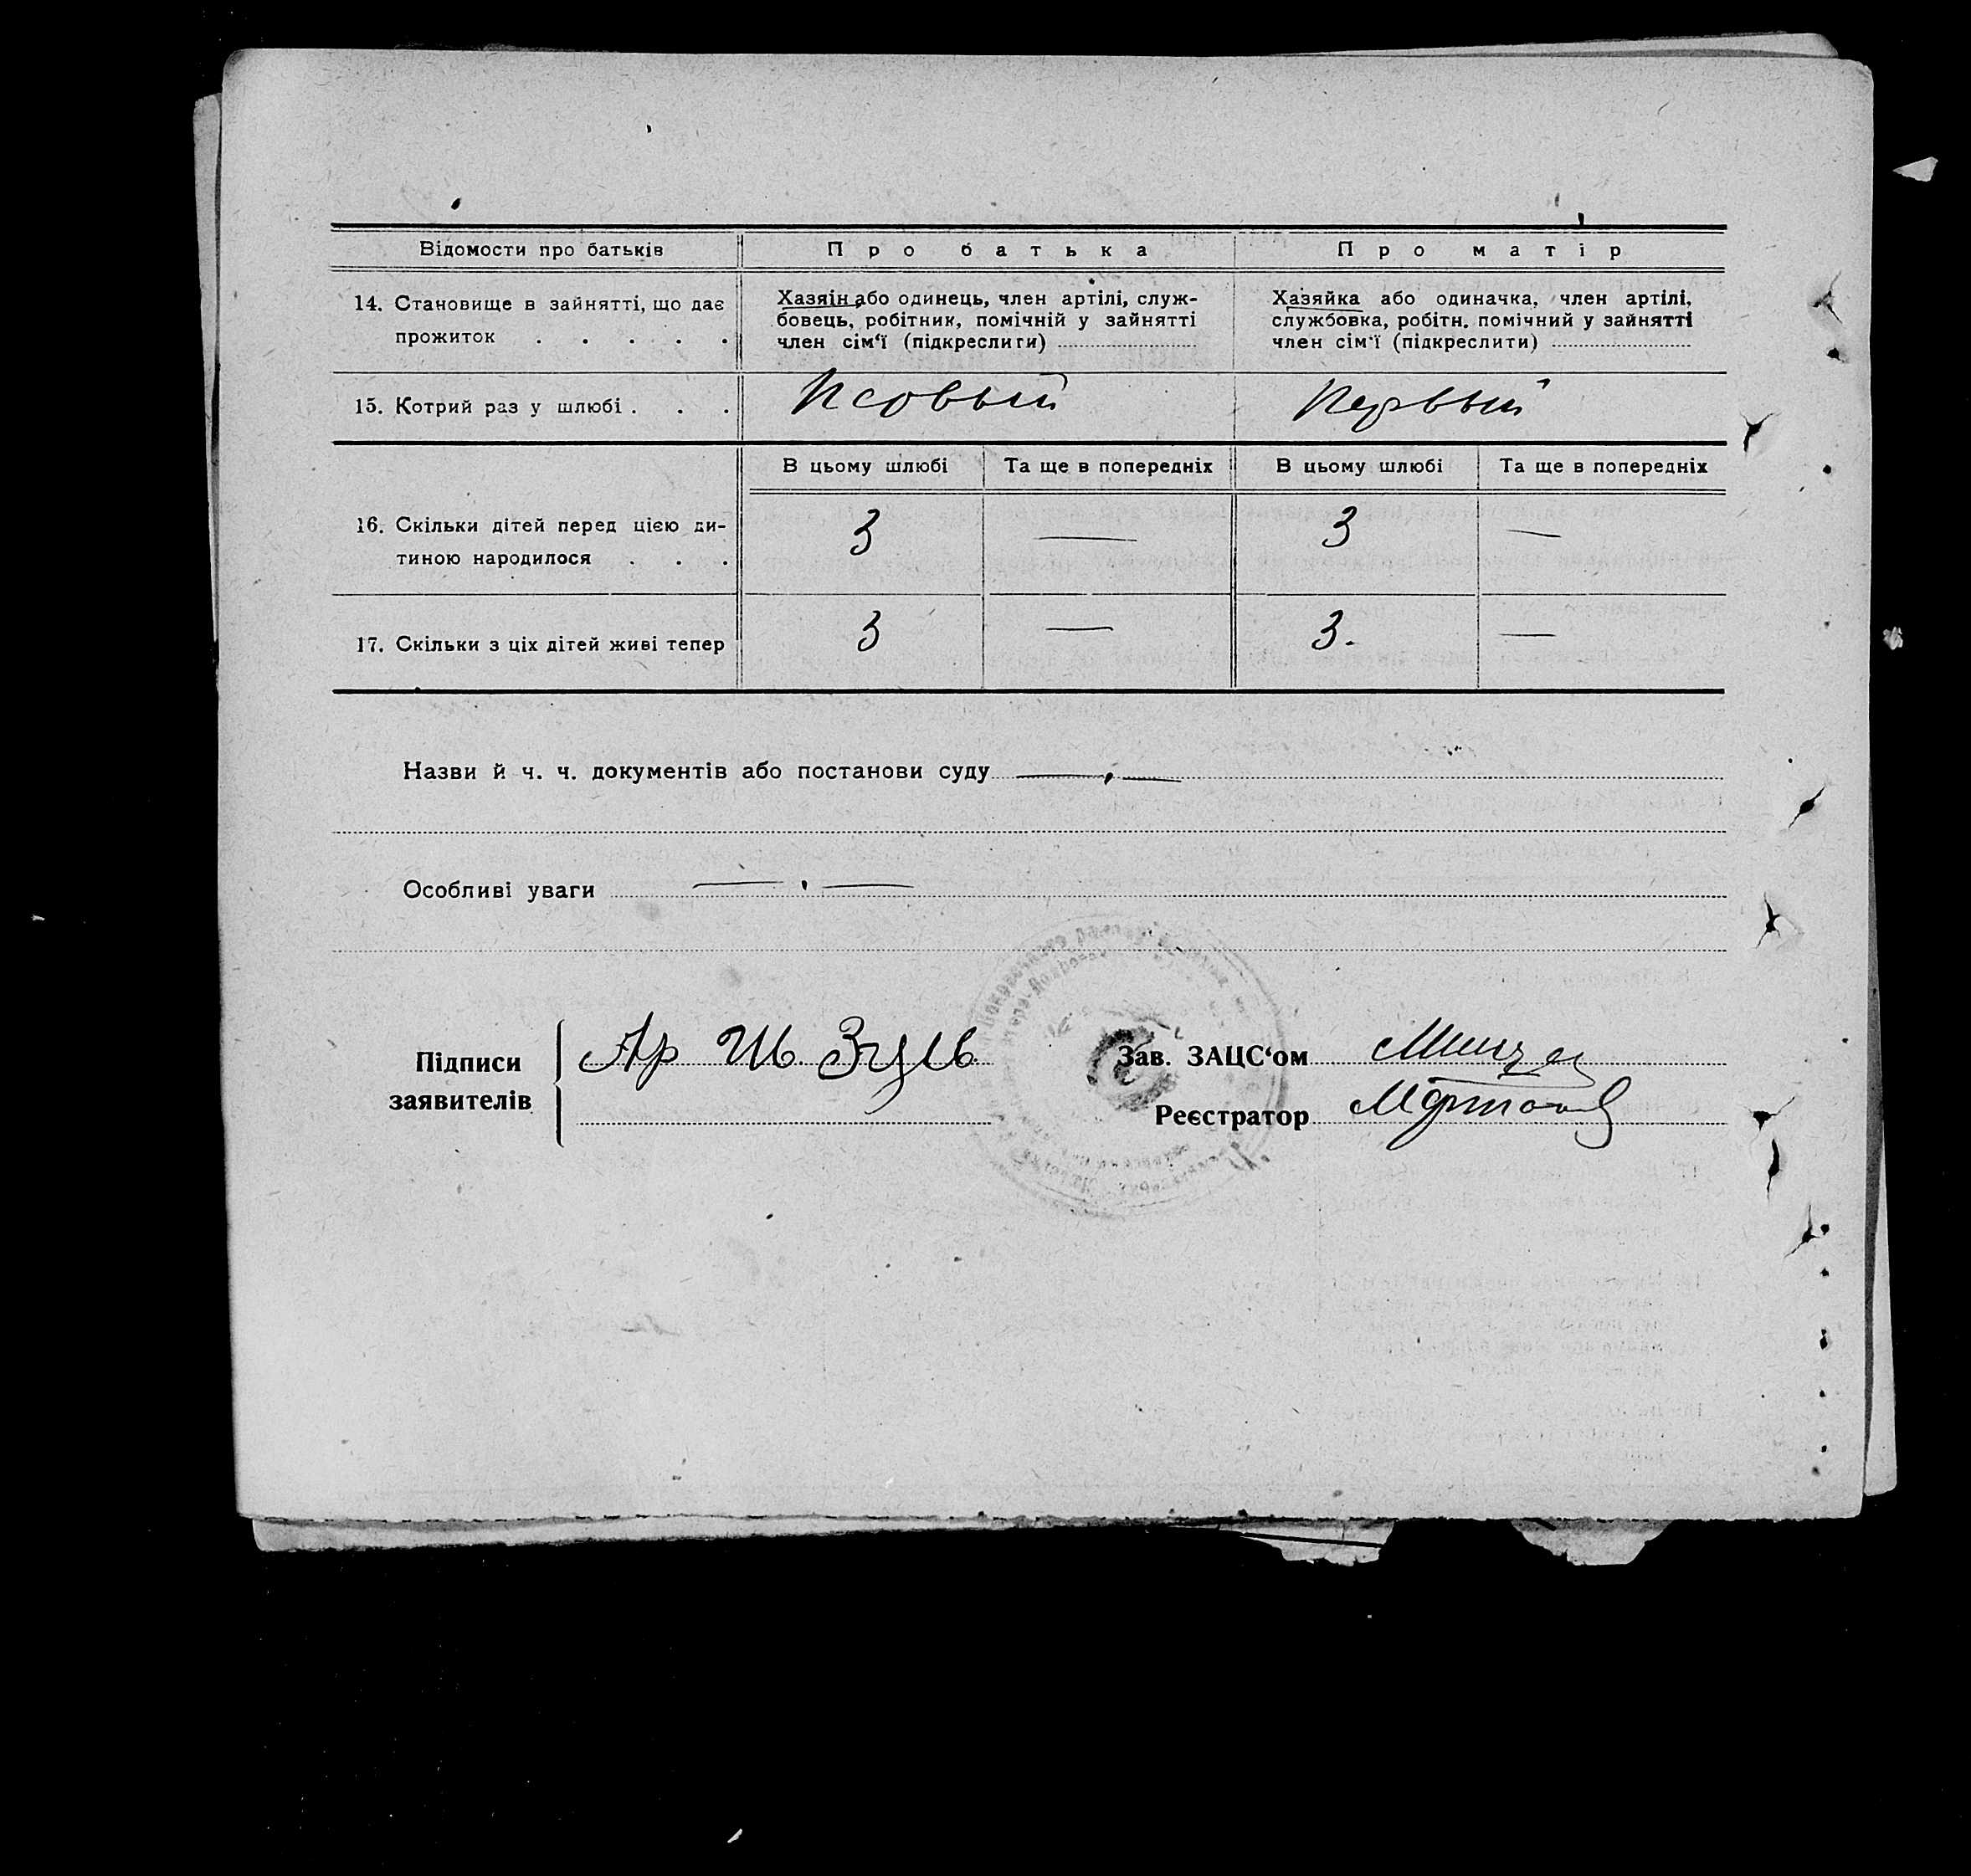 Відомости про батьків Про батька Про матір
14. Становище в зайнятті, що дає прожиток . . . . .
Хазяін або одинець, член артілі, служ-
бовець, робітник, помічній у зайнятті
член сім'ї (підкреслиги)
Хазяйка або одиначка, член артілі,
службовка, робітн. помічний у зайнятті
член сім'ї (підкреслити)
15. Котрий раз у шлюбі . . . Первый Первый
В цьому шлюбі Та ще в попередніх В цьому шлюбі Та ще в попередніх
16. Скільки дітей перед цією ди-
тиною народилося . . . 3 — 3 —
17. Скільки з ціх дітей живі тепер 3 — 3. —
Назви й ч. ч. документів або постанови суду
Особливі уваги
Підписи
заявителів
Зав. ЗАЦС'ом
Реєстратор